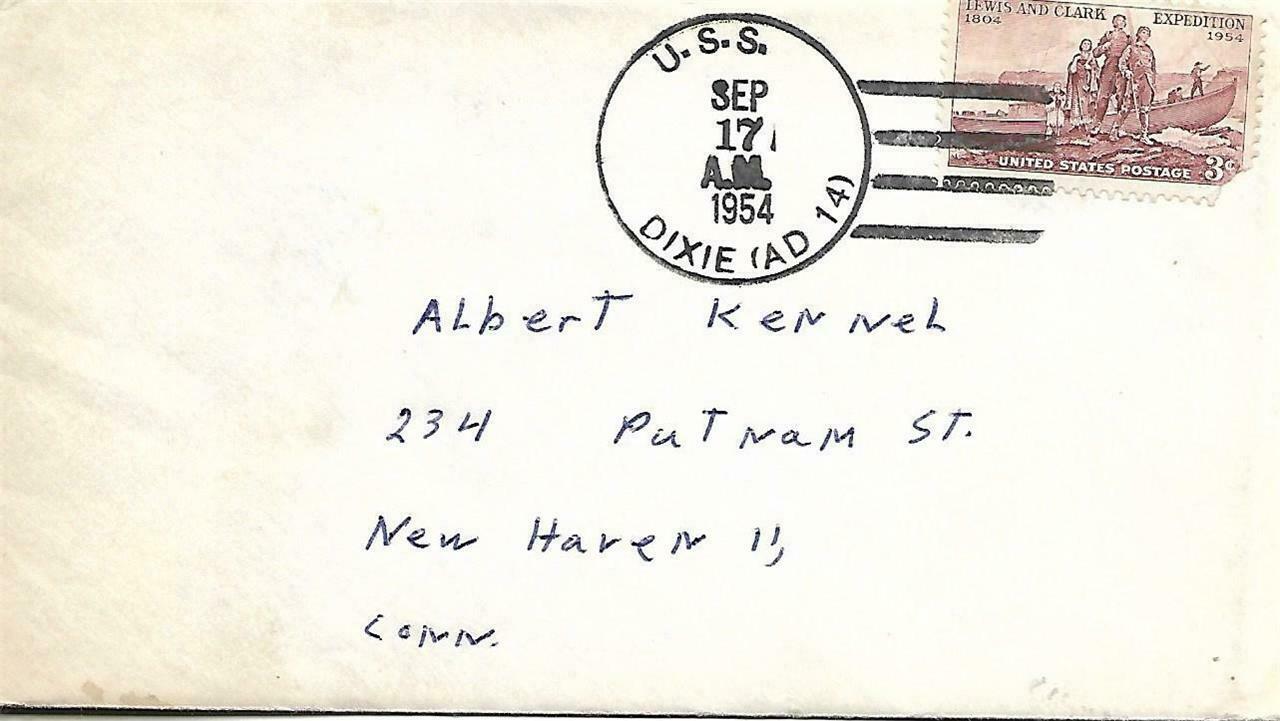 LEWIS AND CLARK EXPEDITION
1804 1954
UNITED STATES POSTAGE 3¢
U.S.S.
SEP
17
A.M.
1954
DIXIE (AD 14)
Albert Kennel
234 Putnam St.
New Haven 11,
Conn.